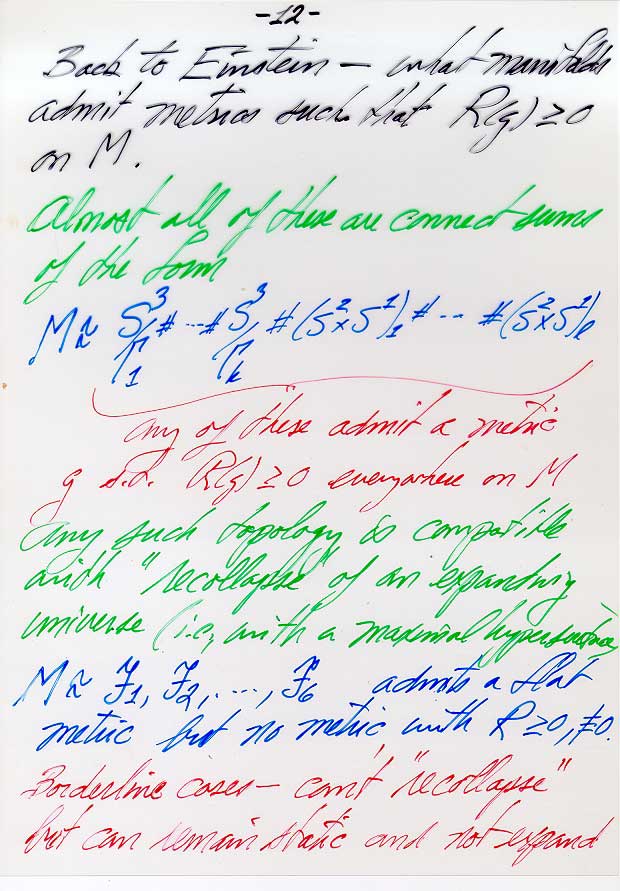 -12-
Back to Einstein – what manifolds
admit metrics such that R(g) ≥ 0
on M.
Almost all of these are connect sums
of the form
M ≈ S³/Γ₁ # ··· # S³/Γₖ # (S²×S¹)₁ # ··· # (S²×S¹)ₗ
any of these admit a metric
g s.t. R(g) ≥ 0 everywhere on M
Any such topology is compatible
with "recollapse" of an expanding
universe (i.e., with a maximal hypersurface)
M ≈ F₁, F₂, ···, F₆ admits a flat
metric but no metric with R ≥ 0, ≠ 0.
Borderline cases – can't "recollapse"
but can remain static and not expand